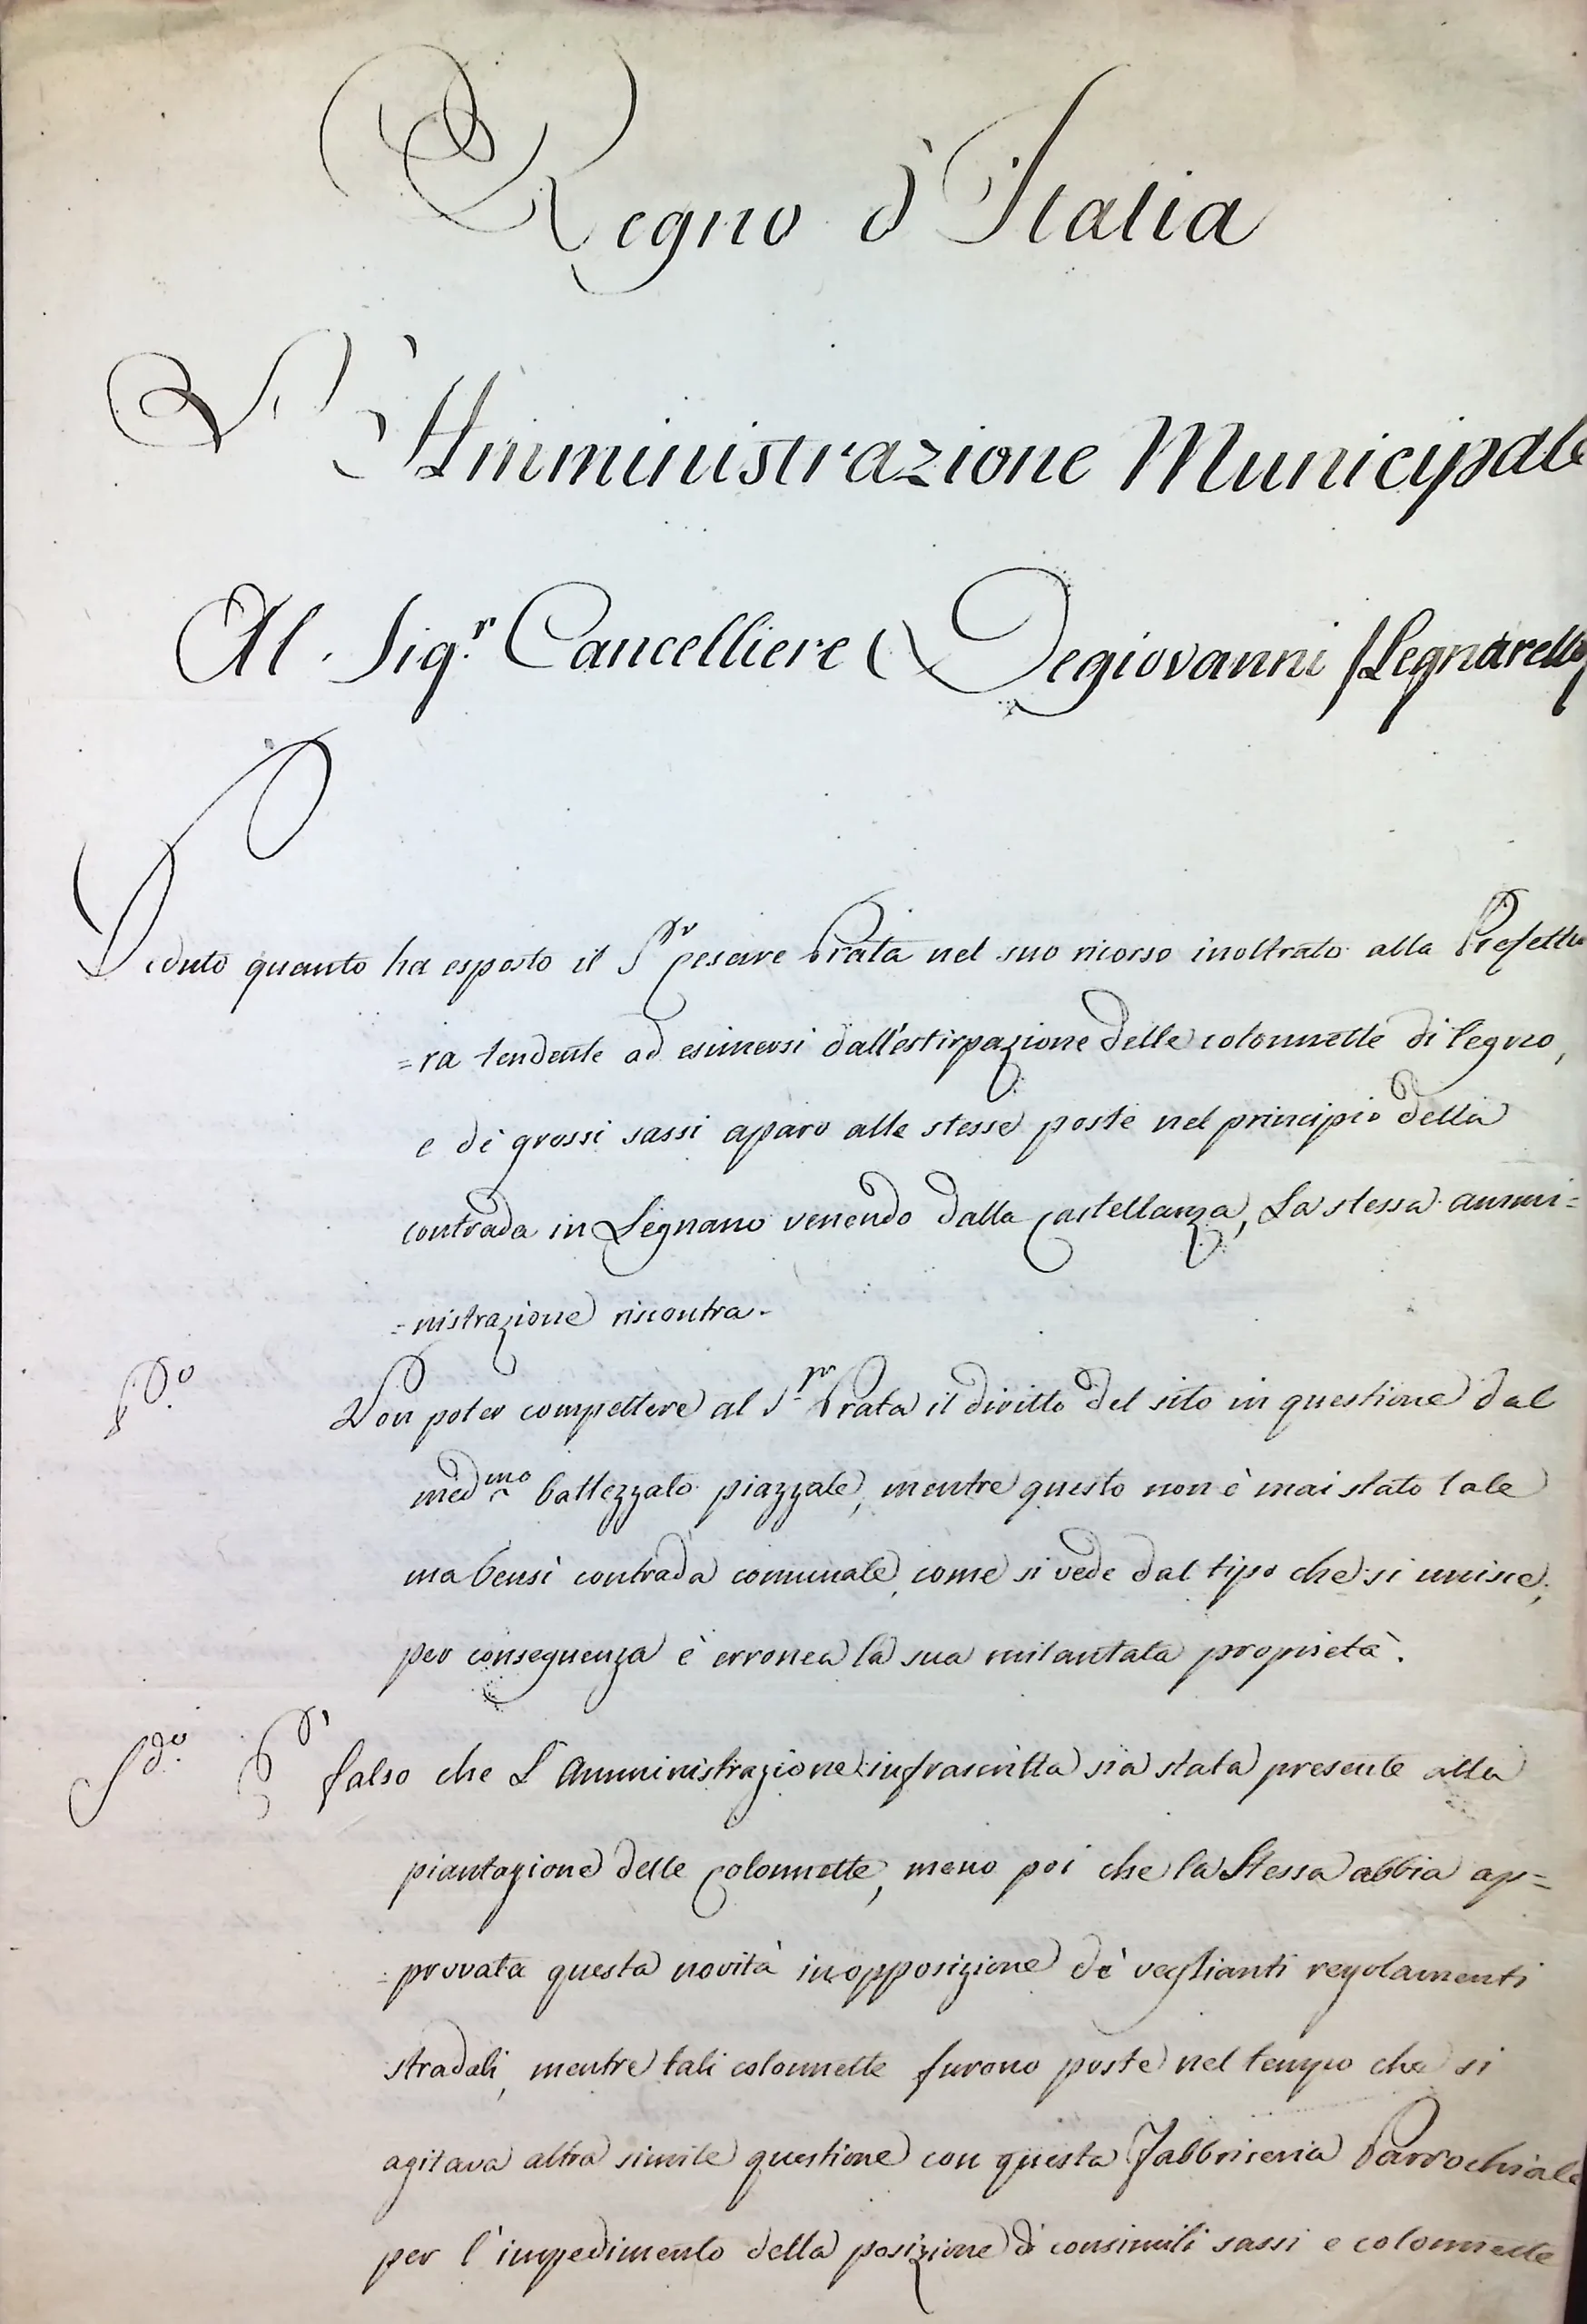 Regno d'Italia
L'Amministrazione Municipale
Al Sig.r Cancelliere Degiovanni /Legnarello/
Veduto quanto ha esposto il Sr Cesare Prata nel suo ricorso inoltrato alla Prefettu
=ra tendente ad esimersi dall'estirpazione delle colonnette di legno,
e dè grossi sassi aparo alle stesse poste nel principio della
contrada in Legnano venendo dalla Castellanza, La stessa ammi=
=nistrazione riscontra.
Po. Non poter compettere al Sr Prata il diritto del sito in questione dal
medmo battezzato piazzale, mentre questo non è mai stato tale
ma bensì contrada comunale, come si vede dal tipo che si unisce,
per conseguenza è erronea la sua milantata proprietà.
Sdo. È falso che L'Amministrazione infrascritta sia stata presente alla
piantazione delle Colonnette, meno poi che la Stessa abbia ap=
=provata questa novità in opposizione dè veglianti regolamenti
stradali, mentre tali colonnette furono poste nel tempo che si
agitava altra simile questione con questa Fabbriceria Parrochiale
per l'impedimento della posizione di consimili sassi e colonnette